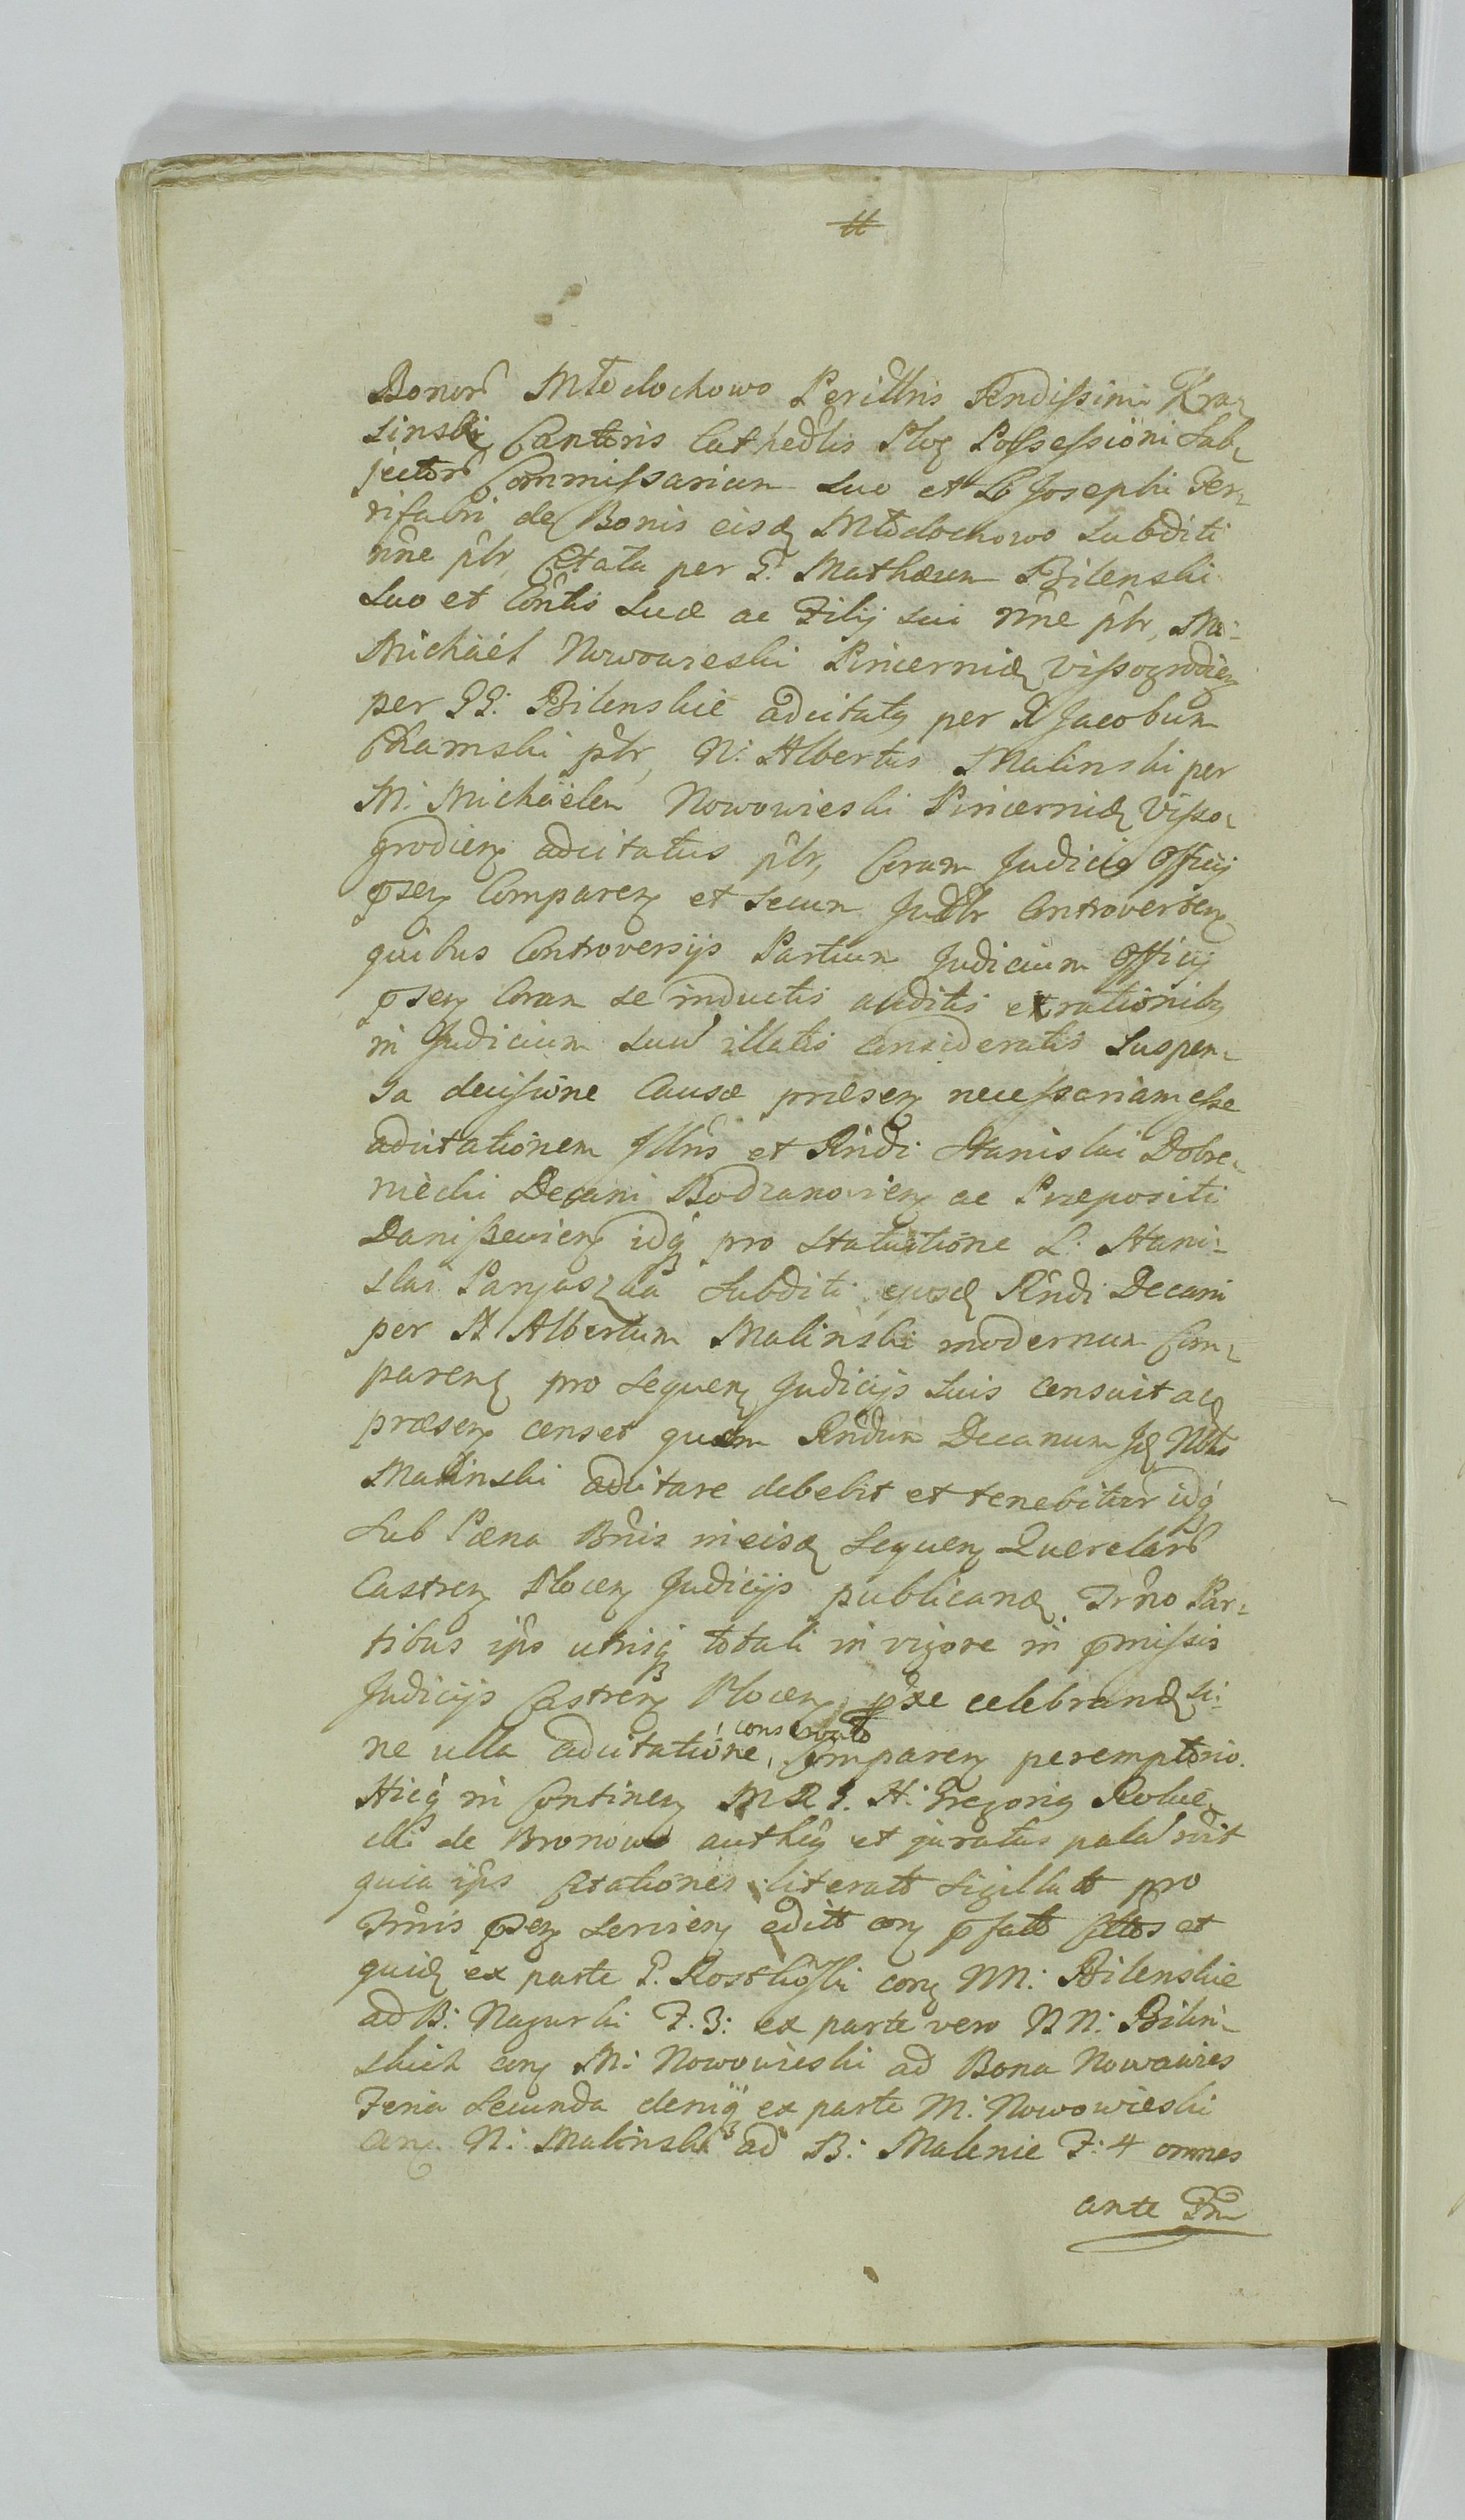 Bonor Młodochowo Perillris Rendissimi Kra-
sinski Cantoris Cathedlis Ploc Possessioni Sub-
jector Commissarium Suo et L Josephi Fer-
rifabri de Bonis eisd Młodochowo Subditi
nne ptr, Citata per G. Mathæum Bilenski
Suo et Contis Suæ ac Filij sui nne ptr, M
Michaël Nowowieski Pincernid Vissogrodien
per GG: Bilenskie adcitatq per G Jacobum
Chamski ptr, N: Albertus Malinski per
M: Michaëlem Nowowieski Pincernid Visso-
grodien adcitatus ptr, Coram Judicio Officij
psen Comparen et Secum Judlr Controverten
quibus Controversijs Partium Judicium Officij
psen Coram se inductis auditis et rationibq
in Judicium suu illatis consideratis Suspen-
sa decisione Causæ præsen necessariam esse
adcitationem Illris et Rndi Stanislai Dobre-
niecki Decani Bodzanovien ac Præpositi
Daniszevien idq pro statuitione L: Stani-
slai Panjaszka Subditi ejusd Rndi Decani
per N Albertum Malinski modernum Com-
paren pro Sequen Judicijs Suis censuit ac
præsen censet quem Rndum Decanum Id Nblis
Malinski adcitare debebit et tenebitur idq
Sub Pæna Bnis in eisd Sequen Querelar
Castren Plocen Judicijs publicand Trno Par-
tibus ips utrisq totali in vigore in pmissis
Judicijs Castren Plocen pxe celebrand si-
ne ulla adcitatione, conservato Comparen peremptorio.
Hicq in Continen MRG. H: Gregoriq Rolbie-
cki de Bronowo authenq et juratus palau rdit
quia ips Citationes literatt Sigillatt pro
Trnis psen Servien editt con pfatt Cittos et
quid ex parte G. Rostkoski con NN: Bilenskie
ad B: Nagurki F. 3: ex parte vero NN: Bilin-
skich con M: Nowowieski ad Bona Nowawies
Feria Secunda deniq ex parte M: Nowowieski
con N: Malinski ad B: Malenie F: 4 omnes
ante Trn